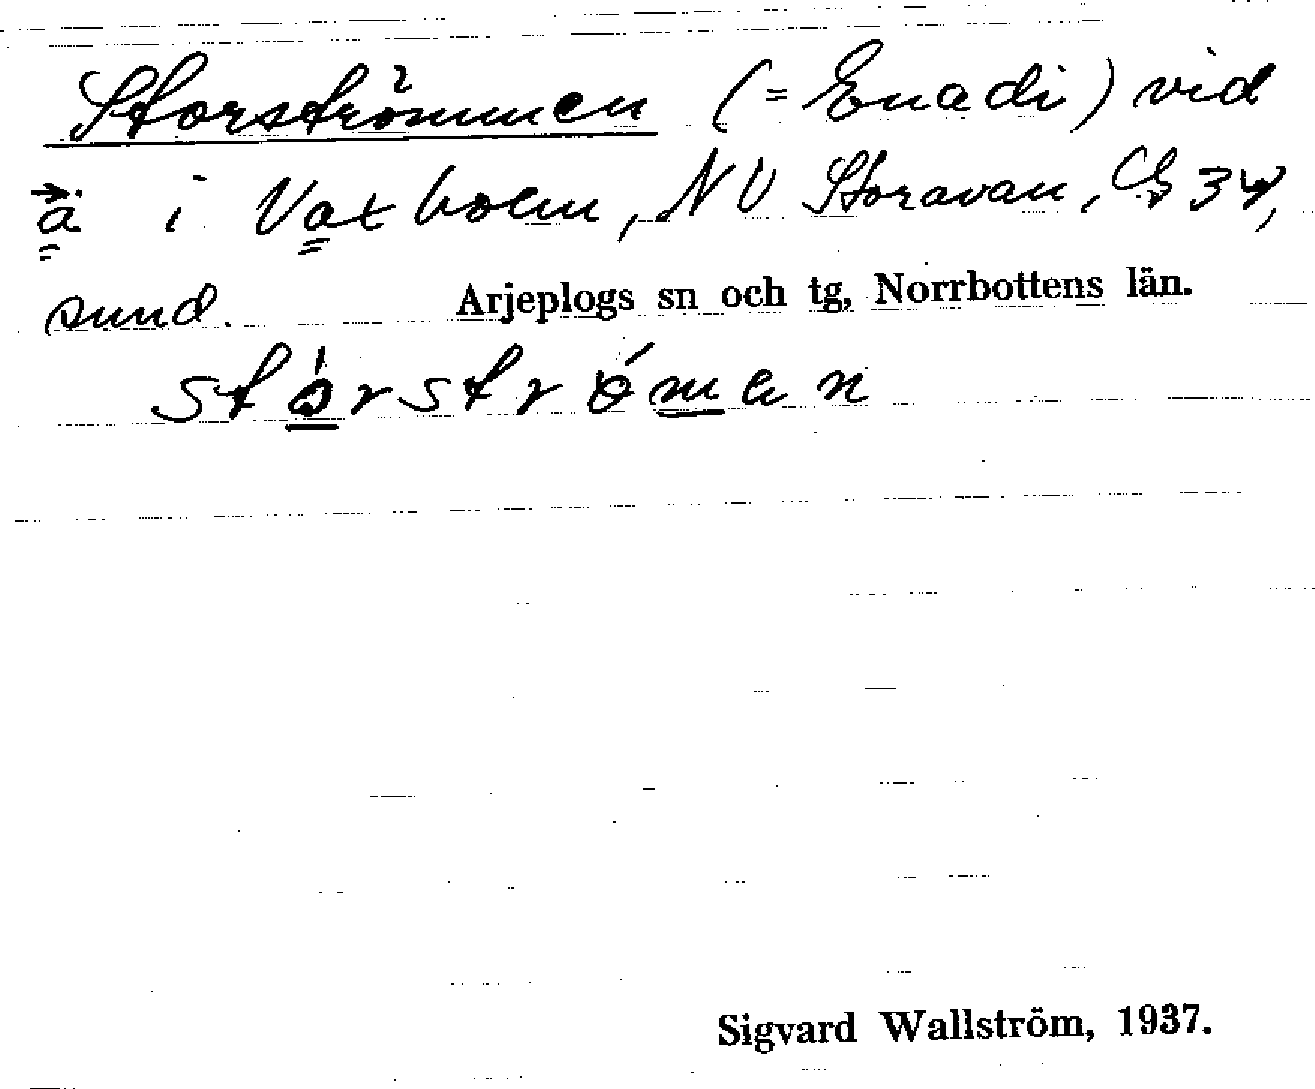 Storströmmen (= Enadi) vid
ä i Vaxholm, NV Storavan, G 34,
sund. Arjeplogs sn och tg, Norrbottens län.
stórstrómen
Sigvard Wallström, 1937.